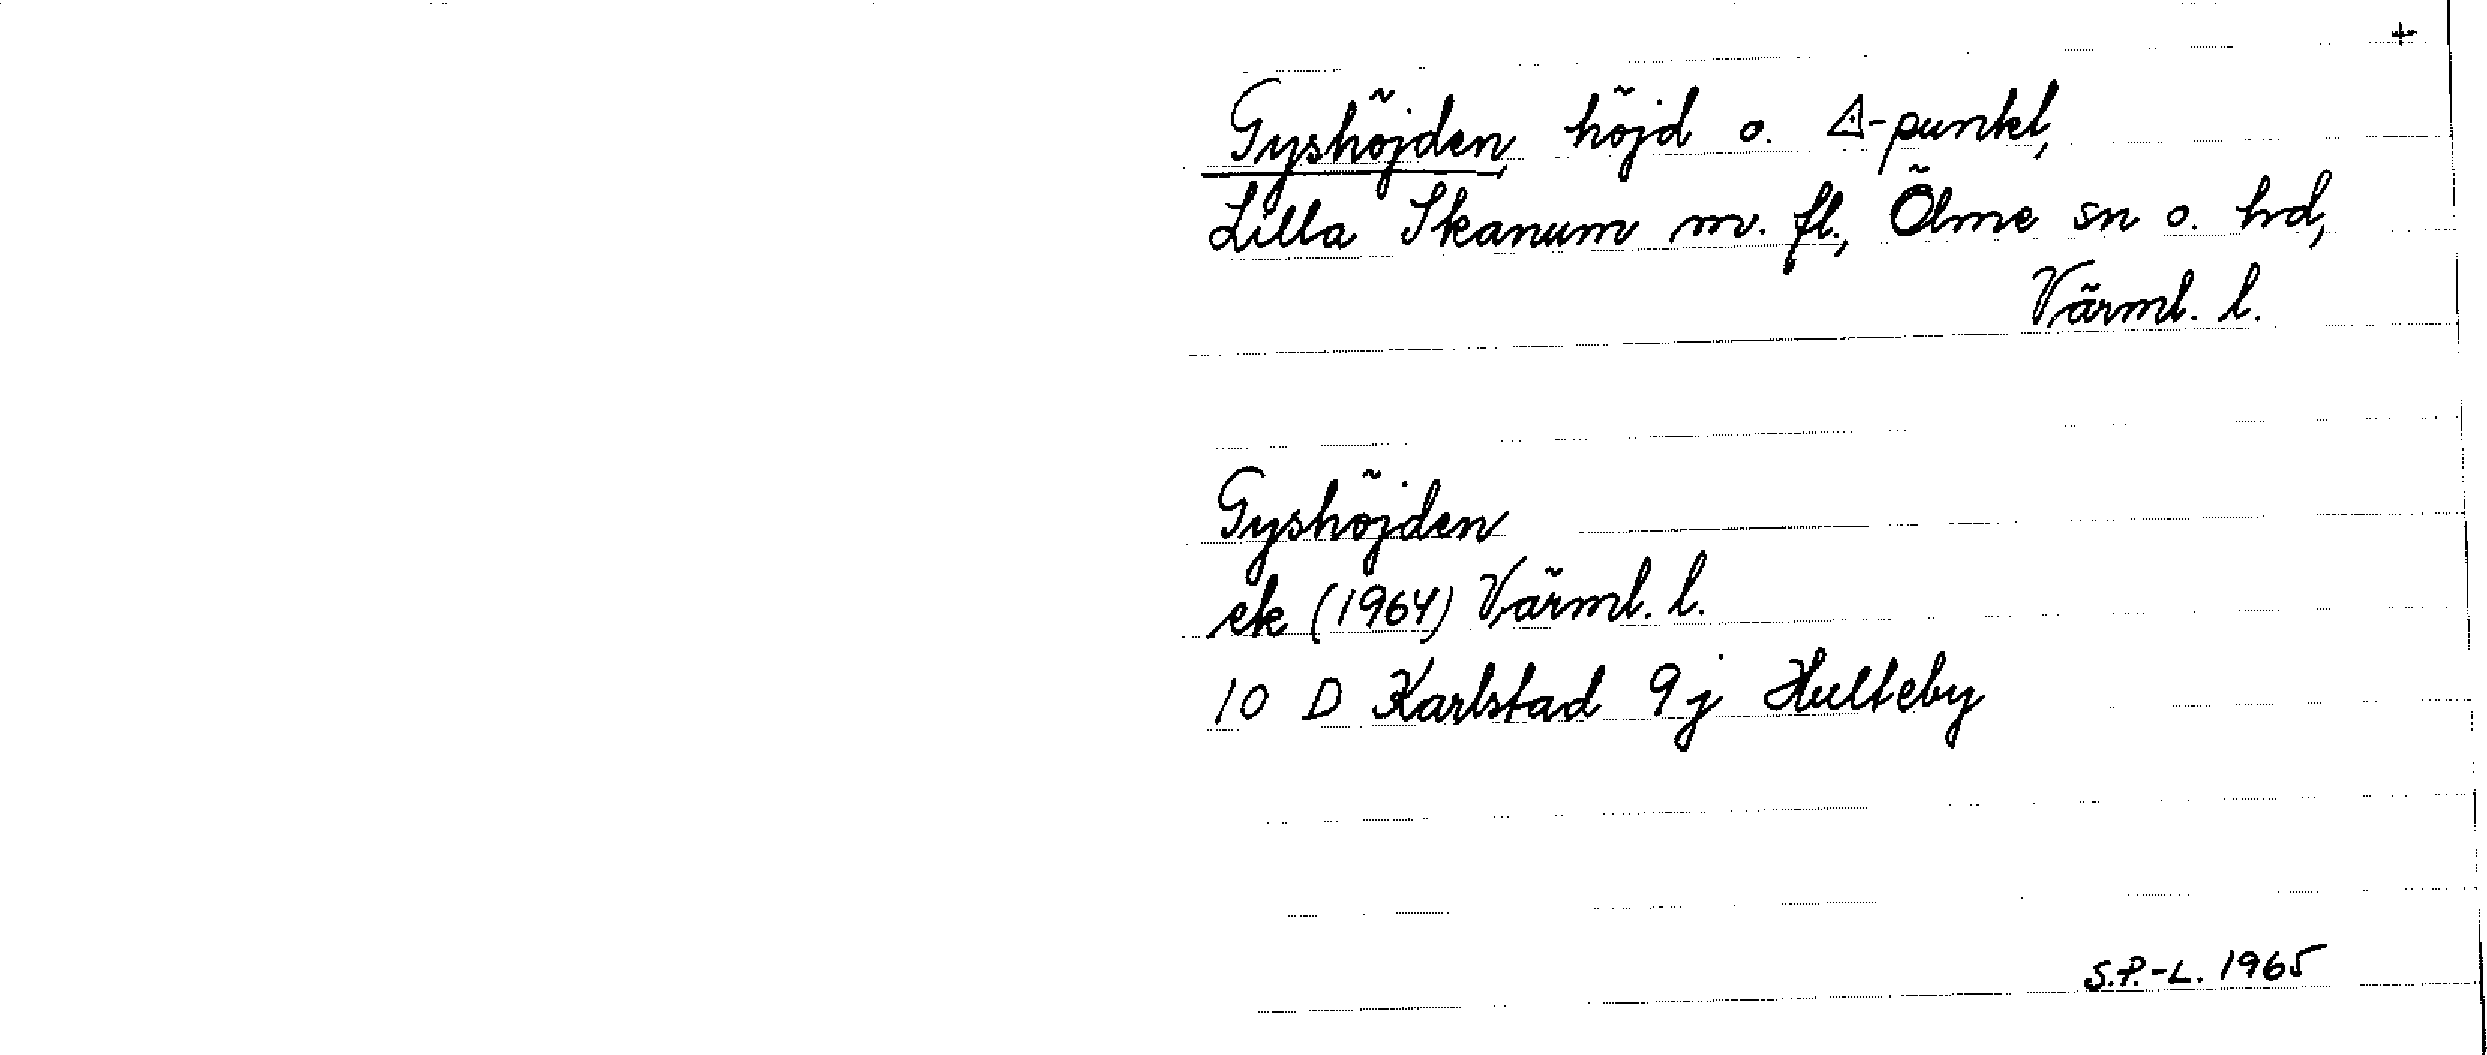 +
Gyshöjden höjd o. ◬-punkt,
Lilla Skanum m. fl., Ölme sn o. hd,
Värml. l.
Gyshöjden
ek (1964) Värml. l.
10 D Karlstad 9j Hulteby
S.P.-L. 1965